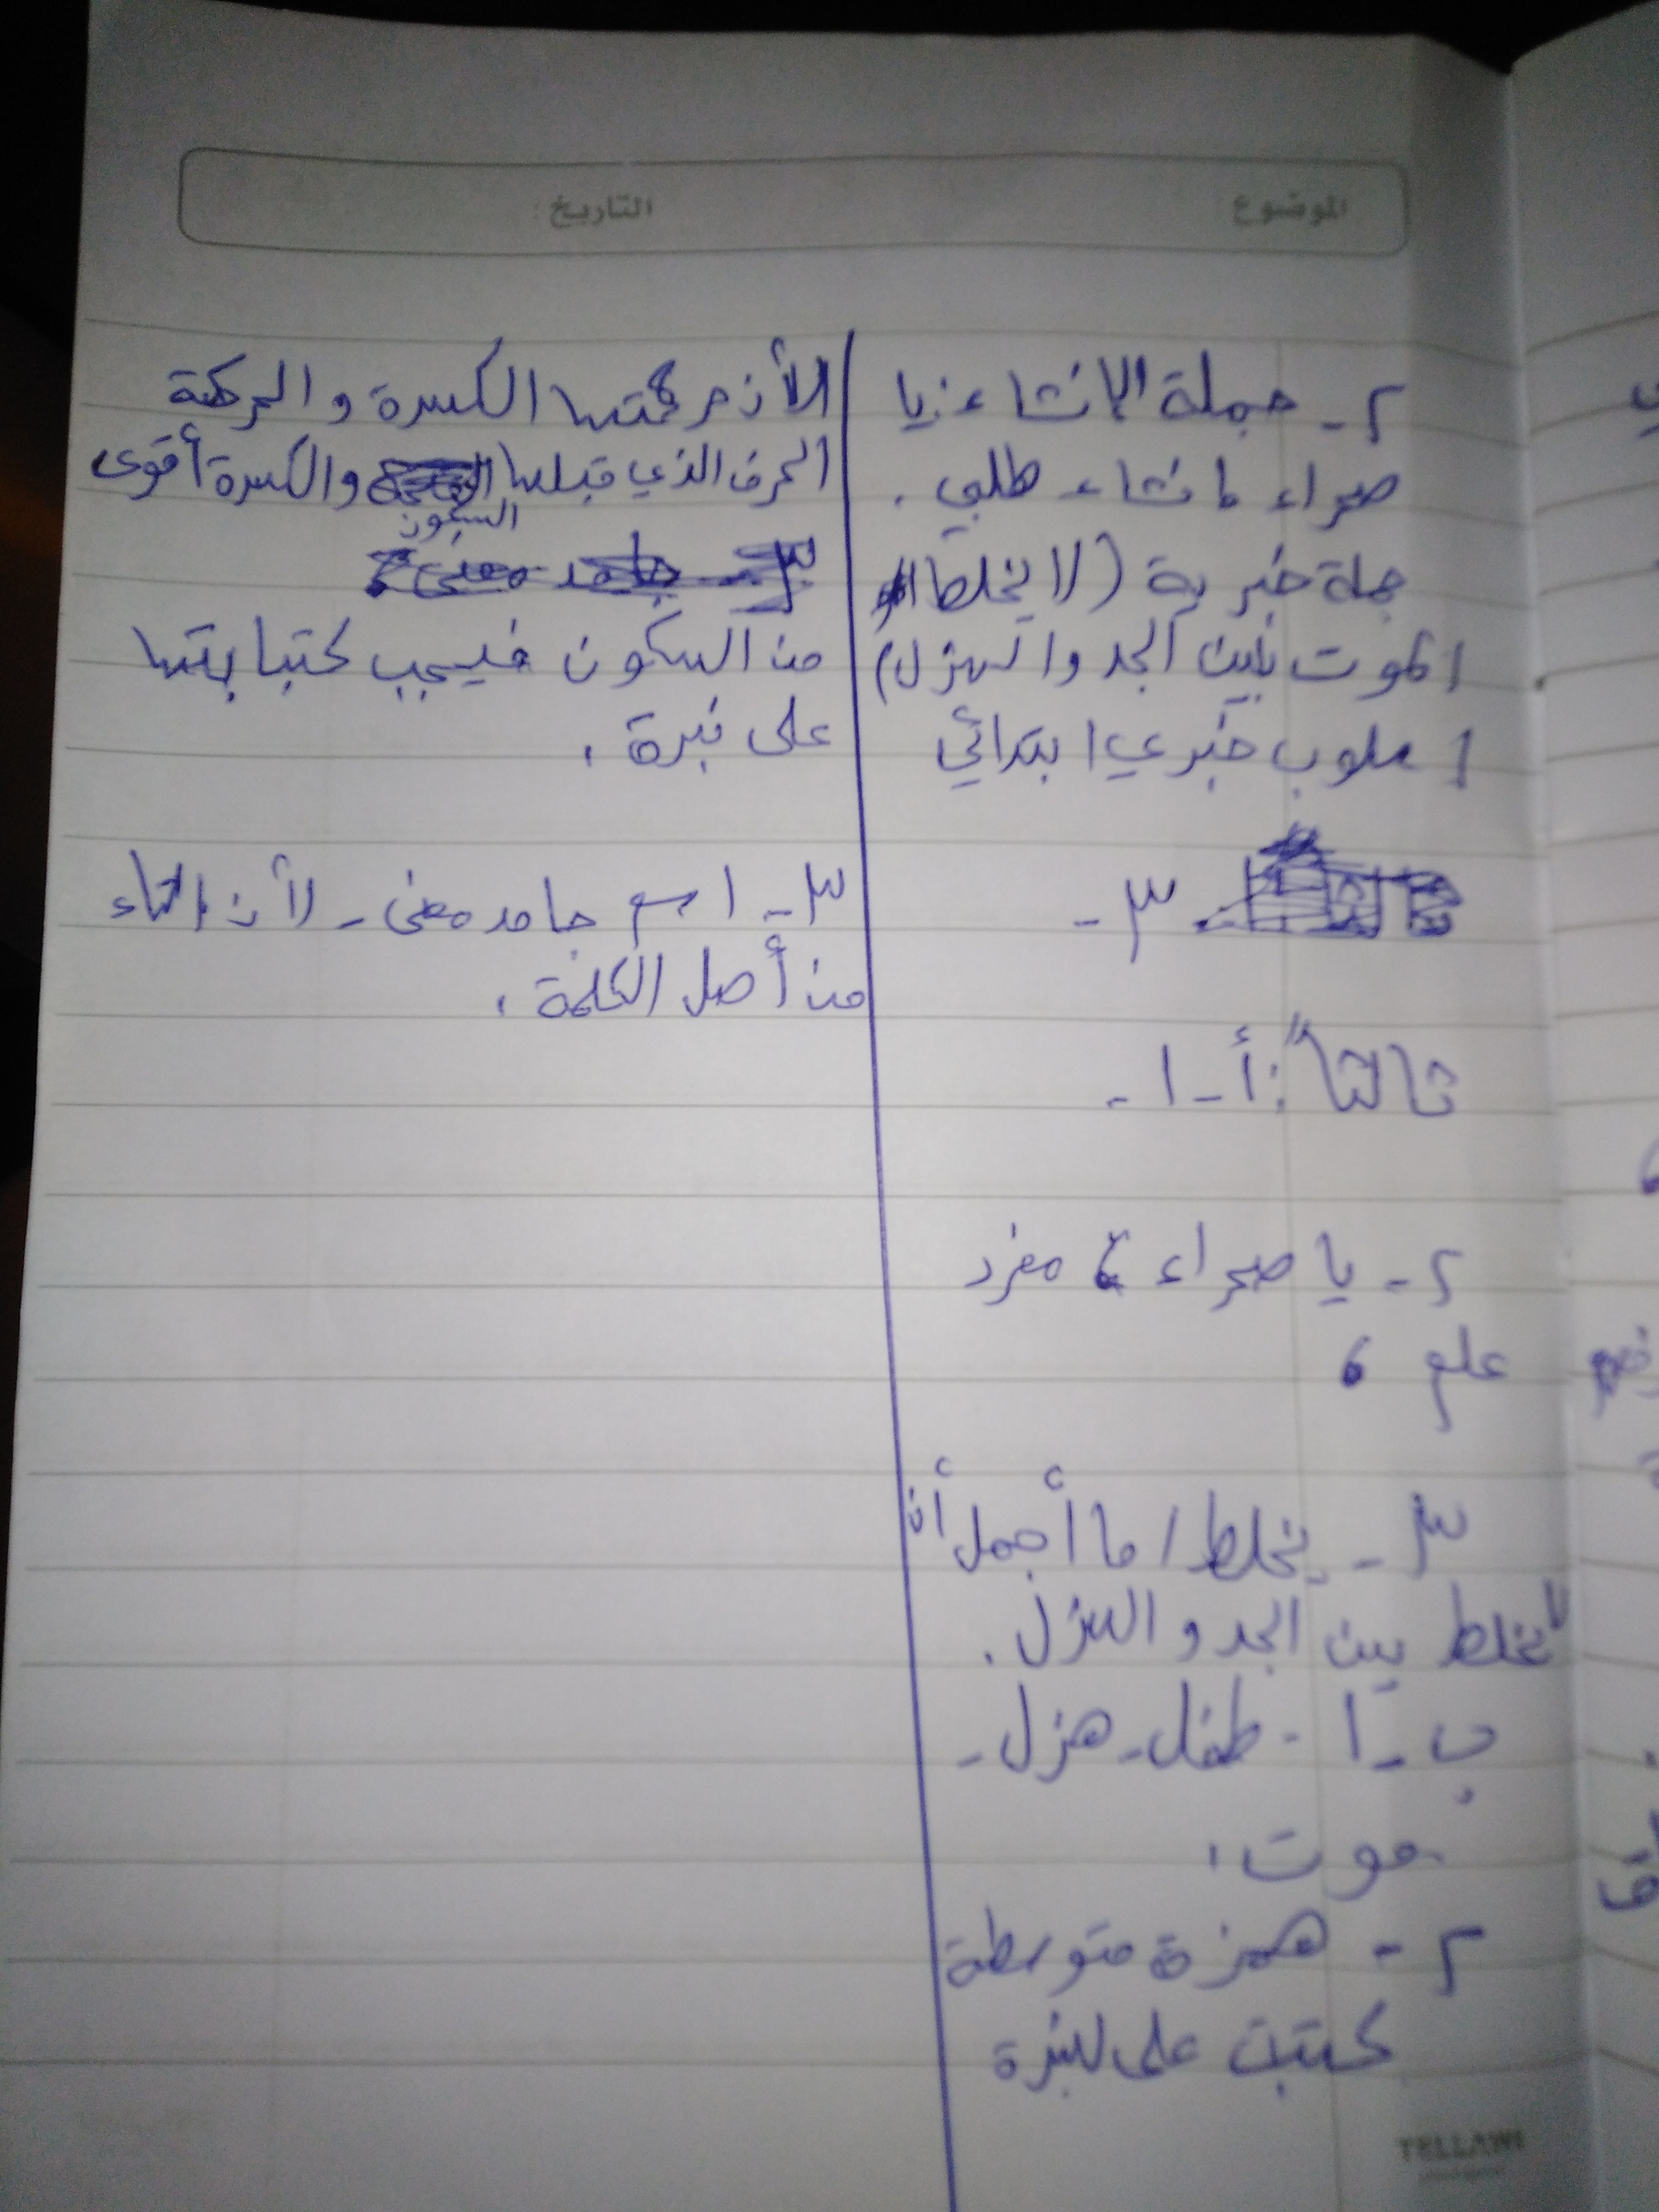 الموضوع
التاريخ:
٢ـ جملة الإنشاء: يا
صحراء إنشاء طلبي.
جملة خبرية (لا يخلط
الموت بين الجد والهزل)
أسلوب خبري ابتدائي
٣ -
ثالثاً: أ - ١ -
٢ - يا صحراء مفرد
علم
٣ - يخلط / ما أجمل أن
لا يخلط بين الجد والهزل.
ب - ١ - طفل - هزل -
موت.
٢ - همزة متوسطة
كتبت على نبرة
لأن حركتها الكسرة والحركة
الحرف الذي قبلها السكون والكسرة أقوى
من السكون فيجب كتابتها
على نبرة.
٣ - اسم جامد معنى - لأن التاء
من أصل الكلمة.
TELLAWI